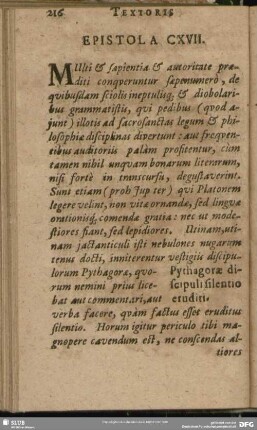 216 TEXTORIS
EPISTOLA CXVII.
MUlti & sapientia & autoritate præ-
diti conqveruntur sæpenumerò, de
qvibusdam sciolis ineptulisq, & diobolari-
bus grammatistis, qui pedibus (qvod a-
junt) illotis ad sacrosanctas legum & phi-
losophiæ disciplinas divertunt: aut freqven-
tibus auditoriis palàm profitentur, cùm
tamen nihil unqvam bonarum literarum,
nisi fortè in transcursu, degustaverint.
Sunt etiam (proh Jupiter) qui Platonem
legere velint, non vitæ ornandæ, sed lingvæ
orationisq, comendæ gratia: nec ut mode-
stiores fiant, sed lepidiores. Utinam, uti-
nam jactanticuli isti nebulones nugarum
tenus docti, inniterentur vestigiis discipu-
lorum Pythagoræ, quo- Pythagoræ di-
rum nemini prius lice- scipuli silentio
bat aut commentari, aut eruditi.
verba facere, qvàm factus esset eruditus
silentio. Horum igitur periculo tibi ma-
gnopere cavendum est, ne conscendas al-
tiores
SLUB
DFG